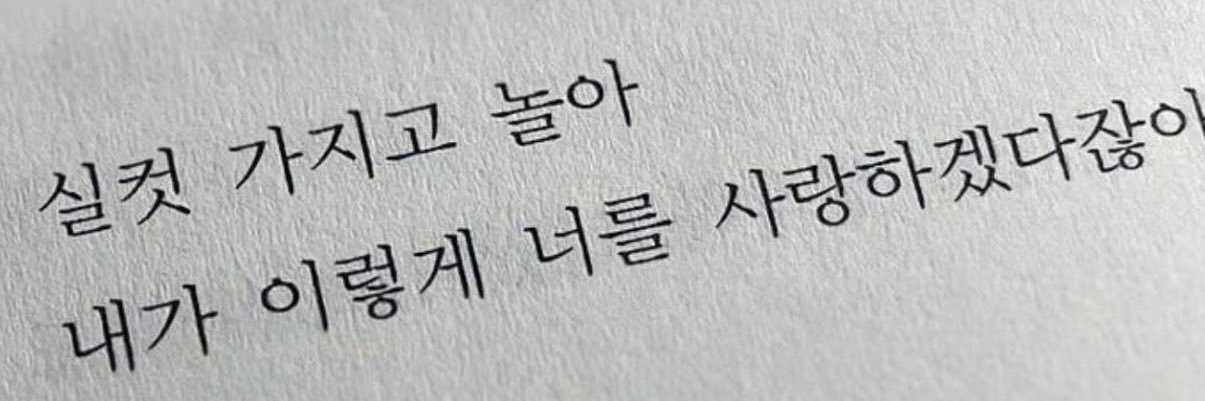 실컷 가지고 놀아
내가 이렇게 너를 사랑하겠다잖아